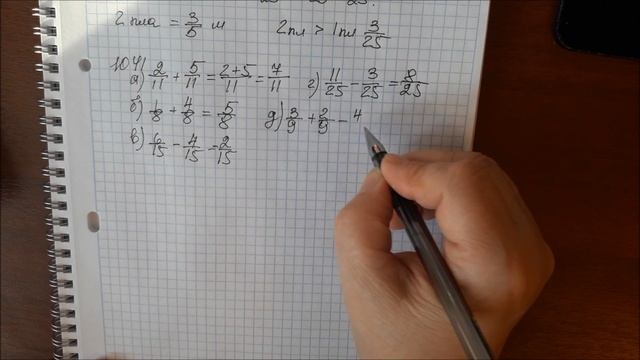 2 пла = 3/5 м 2 пл > 1 пл 3/25
1041
а) 2/11 + 5/11 = 2+5/11 = 7/11 г) 11/25 - 3/25 = 8/25
б) 1/8 + 4/8 = 5/8 д) 3/9 + 2/9 - 4
в) 6/15 - 4/15 = 2/15